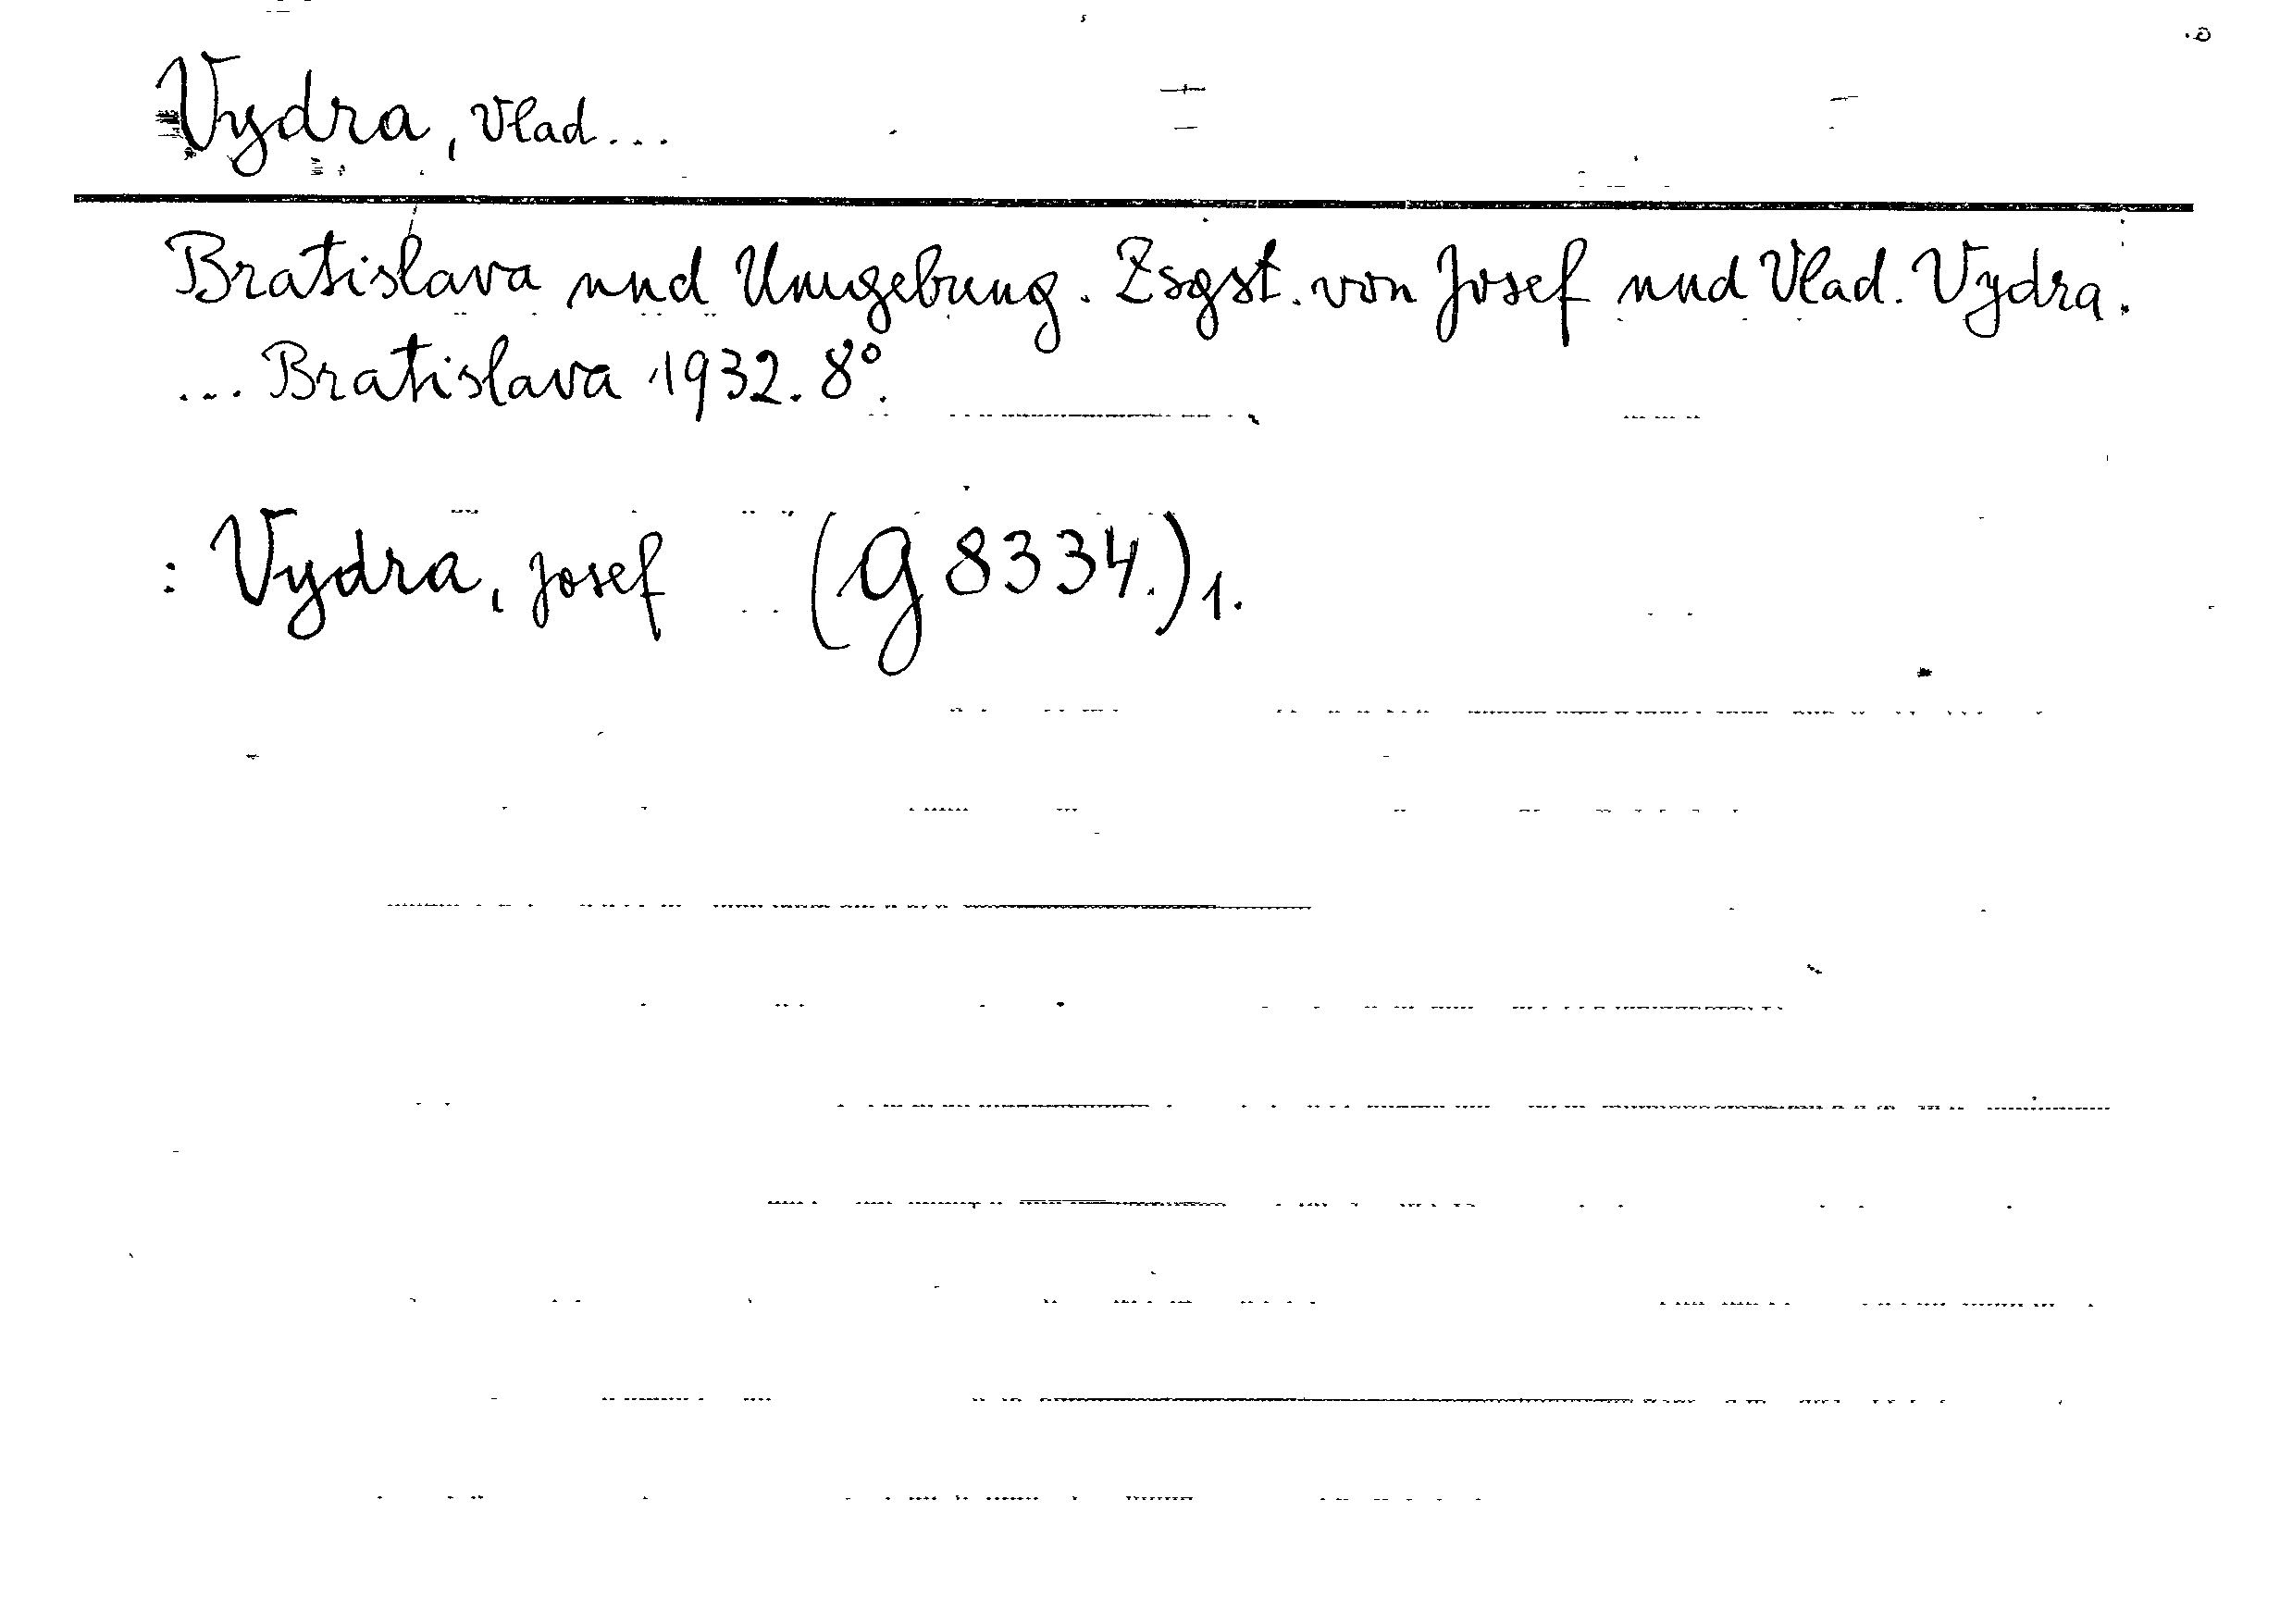 Vydra, Vlad...
Bratislava und Umgebung. Zsgst. von Josef und Vlad. Vydra.
... Bratislava 1932. 8°.
: Vydra, Josef (G 8334.) 1.